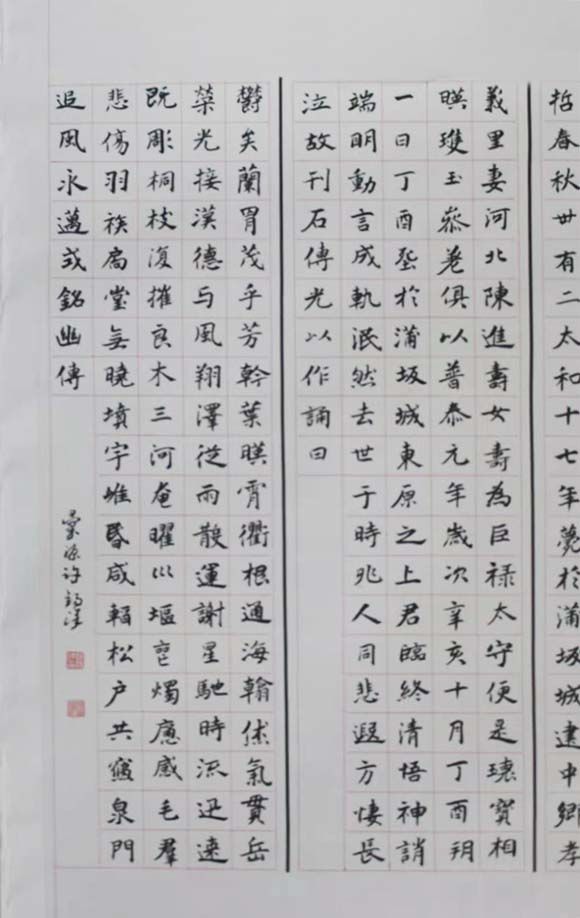 哲春秋廿有二太和十七年薨於蒲坂城建中鄉孝
義里妻河北陳進壽女壽為巨禄太守便是瓌寶相
暎瓊玉參差俱以普泰元年歲次辛亥十月丁酉朔
一日丁酉塟於蒲坂城東原之上君臨終清悟神誚
端明動言成軌泯然去世于時兆人同悲遐方悽長
泣故刊石傳光以作誦曰
欝矣蘭胄茂乎芳幹葉暎霄衢根通海翰休氣貫岳
榮光接漢德与風翔澤從雨散運謝星馳時流迅速
既彫桐枝復摧良木三河奄曜川堰燭應感毛羣
悲傷羽族扃堂無曉墳宇唯昏咸韜松户共寢泉門
追風永邁式銘幽傳